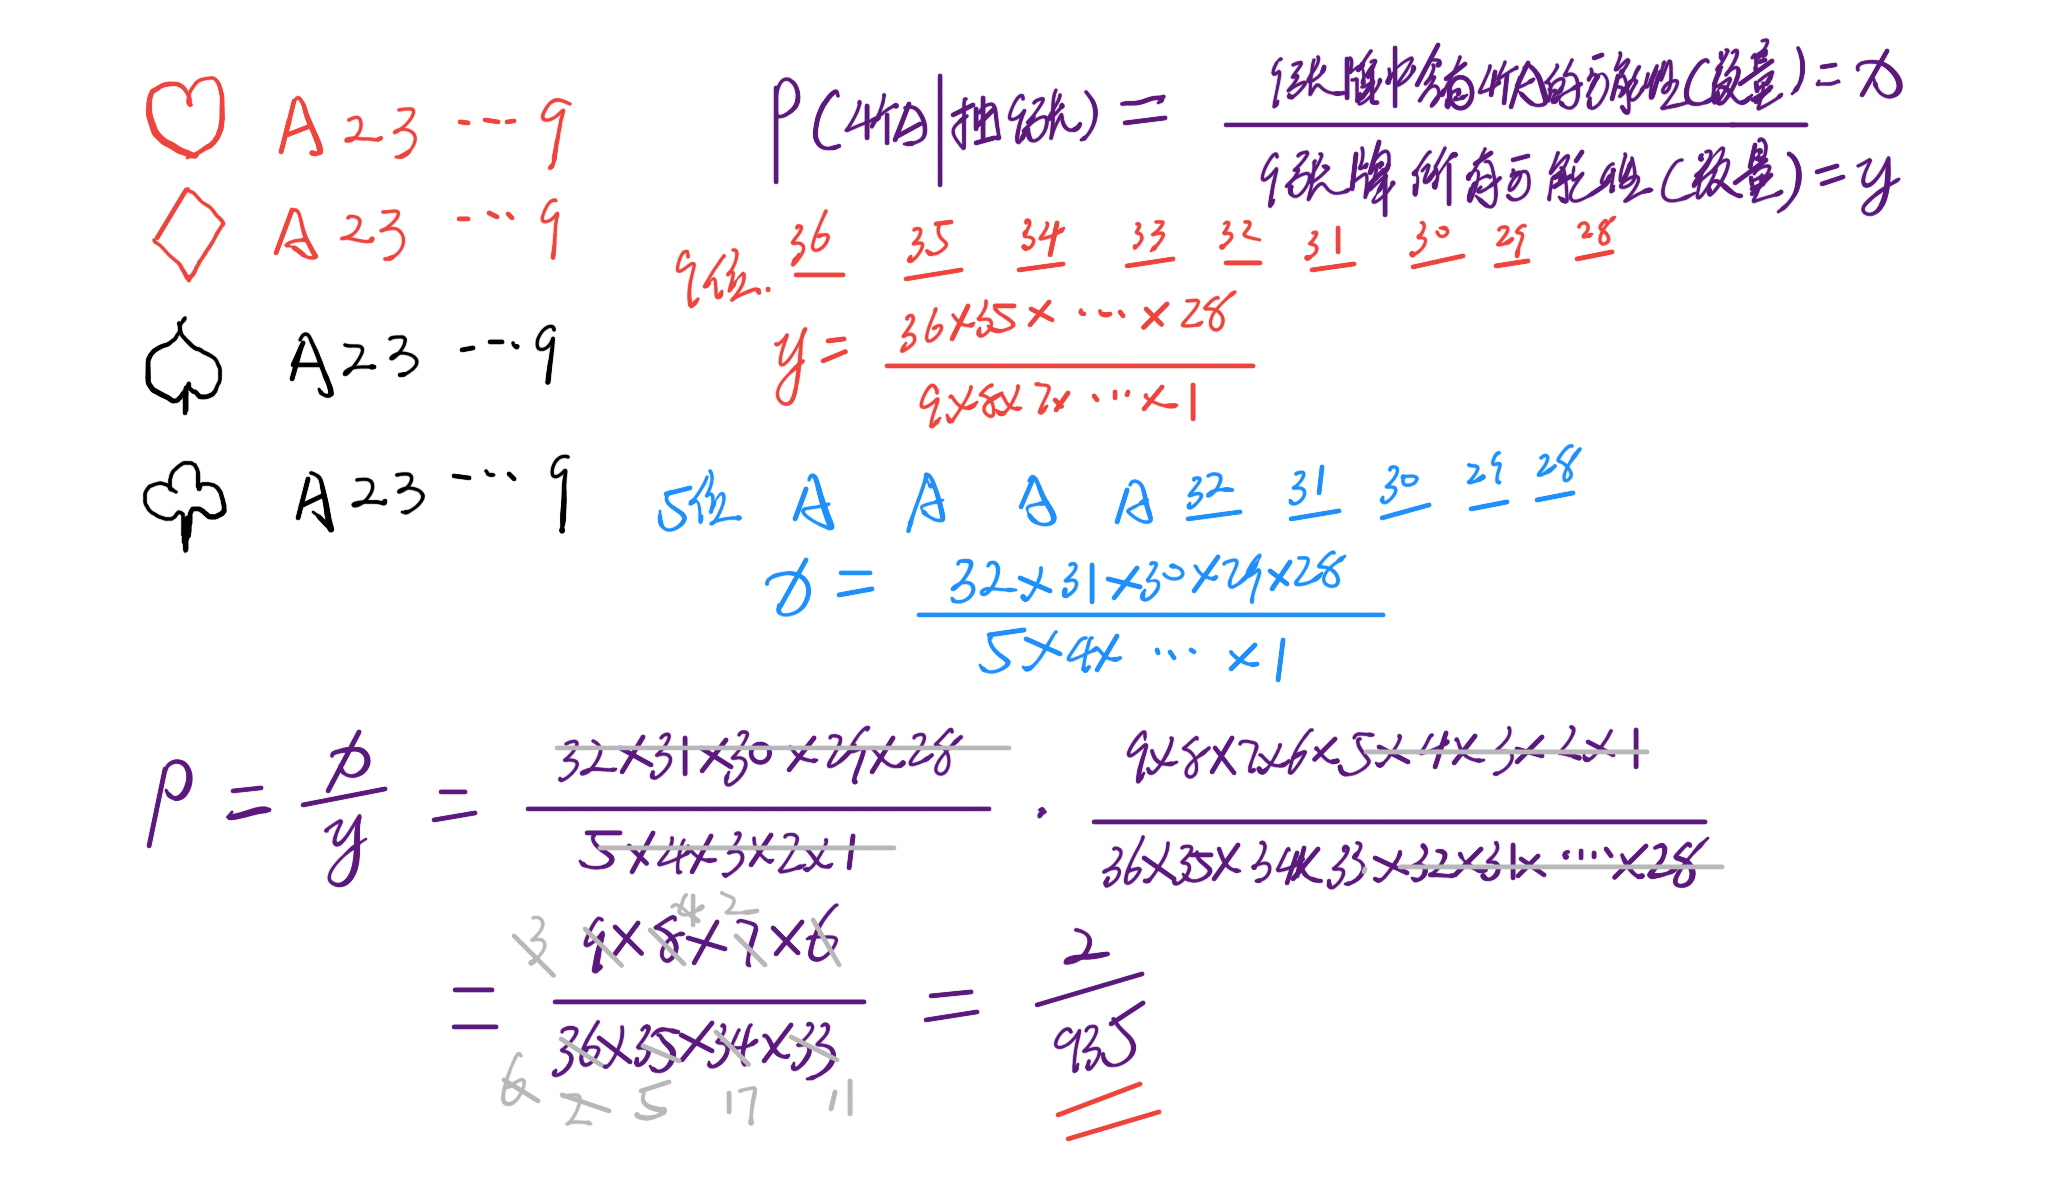 ♡ A 2 3 ··· 9
◇ A 2 3 ··· 9
♠ A 2 3 ··· 9
♣ A 2 3 ··· 9
P(4个A|抽9张) = 9张牌中含有4个A的可能性(数量) = x
9张牌所有可能性(数量) = y
9位. 36 35 34 33 32 31 30 29 28
y = 36×35×···×28
9×8×7×···×1
5位 A A A A 32 31 30 29 28
x = 32×31×30×29×28
5×4×···×1
P = x/y = 32×31×30×29×28 / 5×4×3×2×1 · 9×8×7×6×5×4×3×2×1 / 36×35×34×33×32×31×···×28
3 4 2
= 9×8×7×6 / 36×35×34×33 = 2/935
6 2 5 17 11